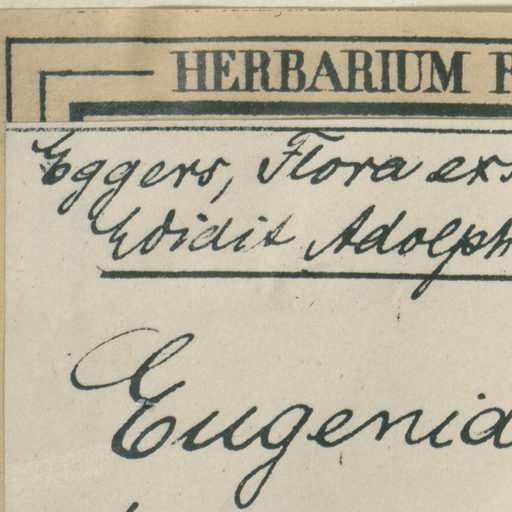 HERBARIUM F
Eggers, Flora exs
Edidit Adolph
Eugenia